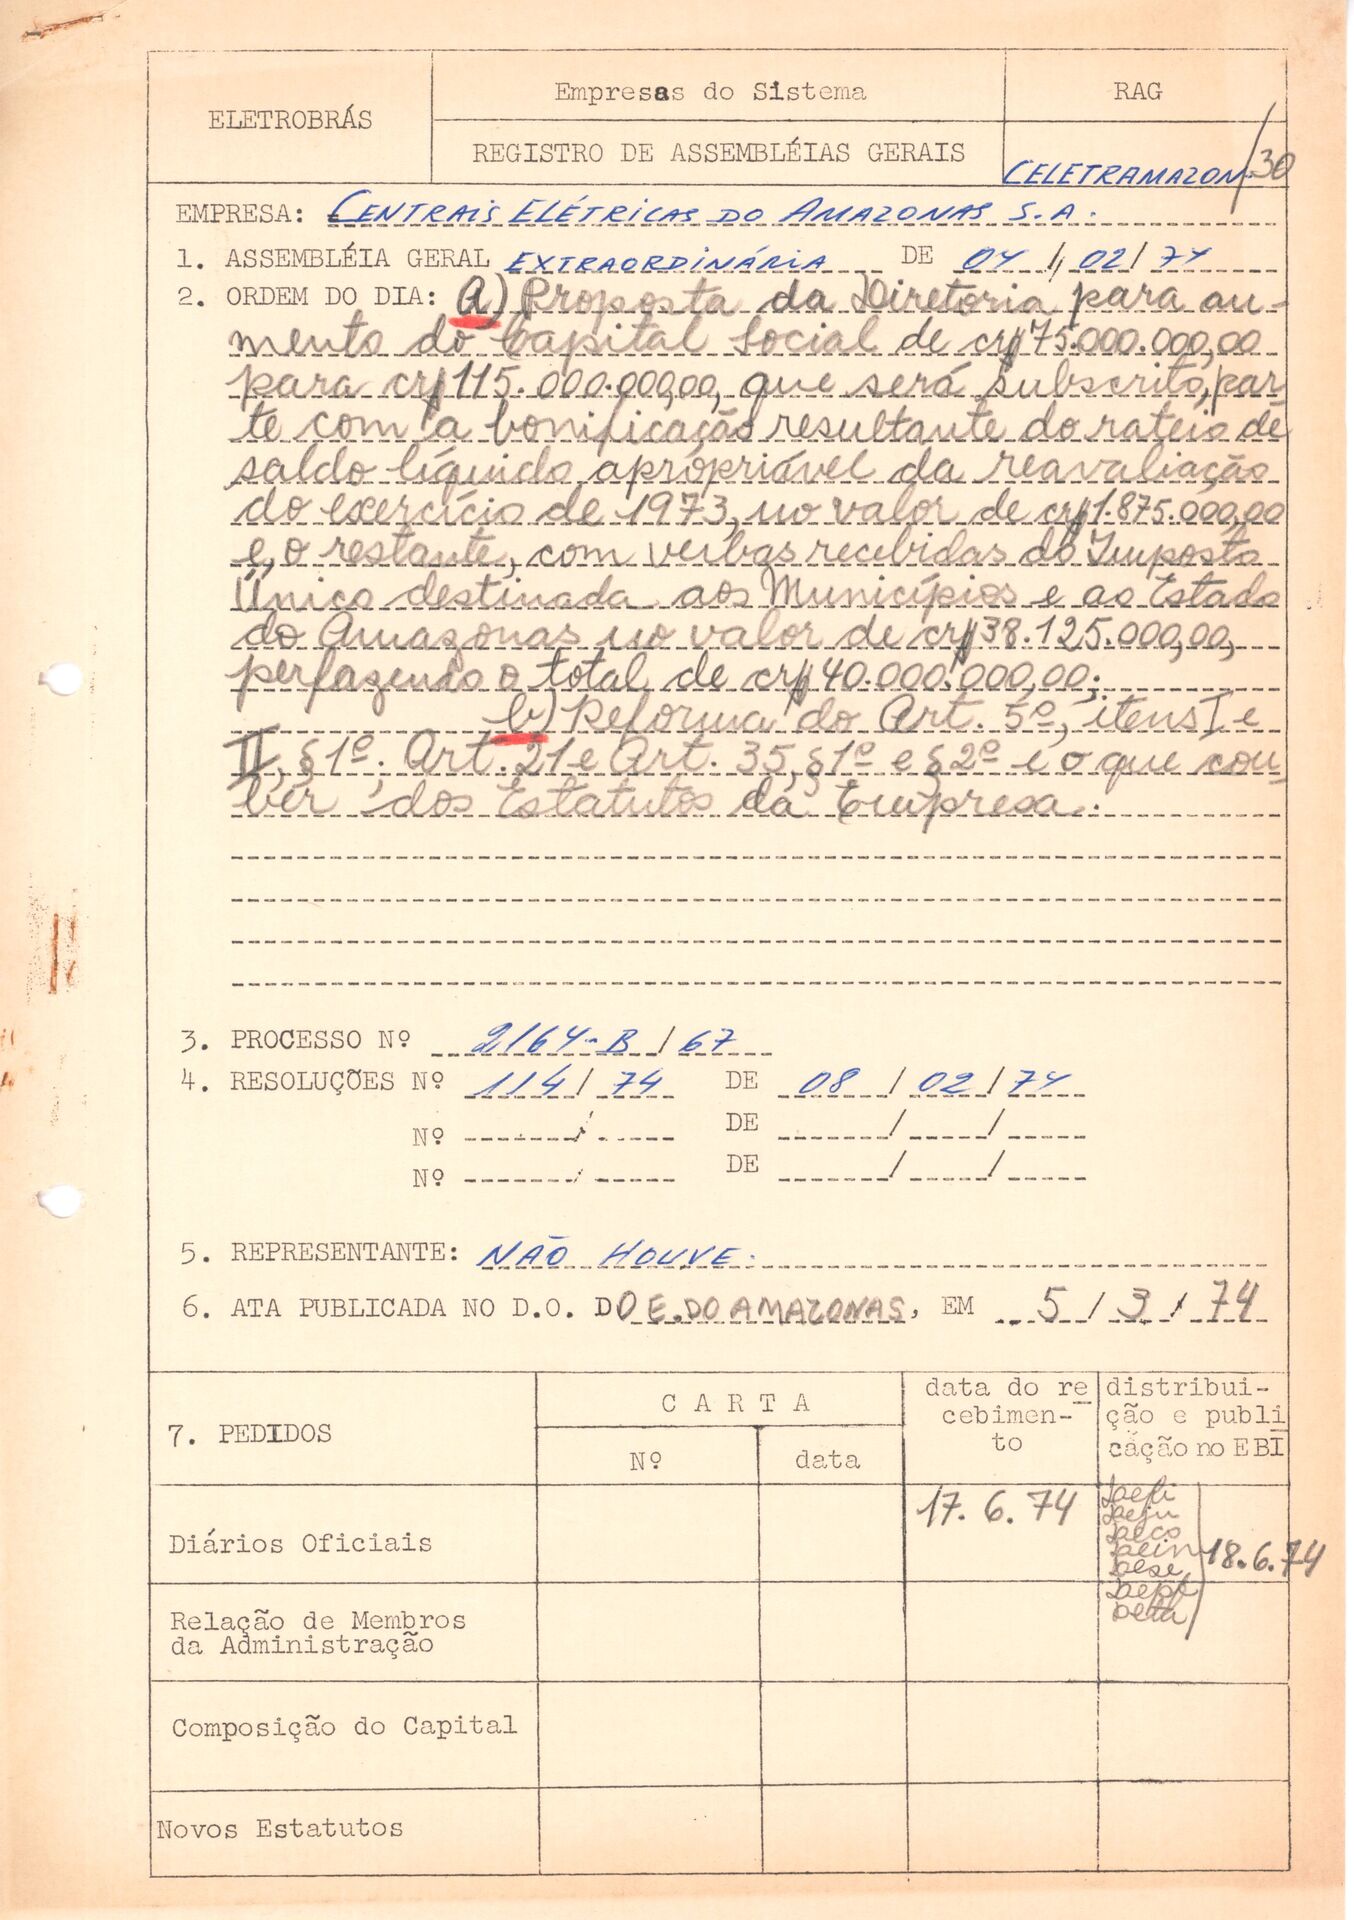 ELETROBRÁS
Empresas do Sistema
RAG
REGISTRO DE ASSEMBLÉIAS GERAIS
CELETRAMAZON/30
EMPRESA: CENTRAIS ELÉTRICAS DO AMAZONAS S.A.
1. ASSEMBLÉIA GERAL EXTRAORDINÁRIA DE 04/02/74
2. ORDEM DO DIA: A) Proposta da Diretoria para au-
mento do Capital Social de cr$75.000.000,00
para cr$115.000.000,00, que será subscrito, par
te com a bonificação resultante do rateio de
saldo líquido apropriável da reavaliação
do exercício de 1973, no valor de cr$1.875.000,00
e, o restante, com verbas recebidas do Imposto
Único destinada aos Municípios e ao Estado
do Amazonas no valor de cr$38.125.000,00,
perfazendo o total de cr$40.000.000,00;
b) Reforma do Art. 5º, itens I e
II, § 1º; Art. 21 e Art. 35, § 1º e § 2º e o que cou-
ber dos Estatutos da Empresa.
3. PROCESSO Nº 2164-B/67
4. RESOLUÇÕES Nº 114/74 DE 08/02/74
Nº / DE / /
Nº / DE / /
5. REPRESENTANTE: NÃO HOUVE.
6. ATA PUBLICADA NO D.O. DO E. DO AMAZONAS, EM 5/3/74
7. PEDIDOS
CARTA
Nº
data
data do re
cebimen-
to
distribui-
ção e publi
cação no EBI
Diários Oficiais
17.6.74
Daefi
Daeju
Daeco
Daein
Daese
18.6.74
Relação de Membros
da Administração
Composição do Capital
Novos Estatutos